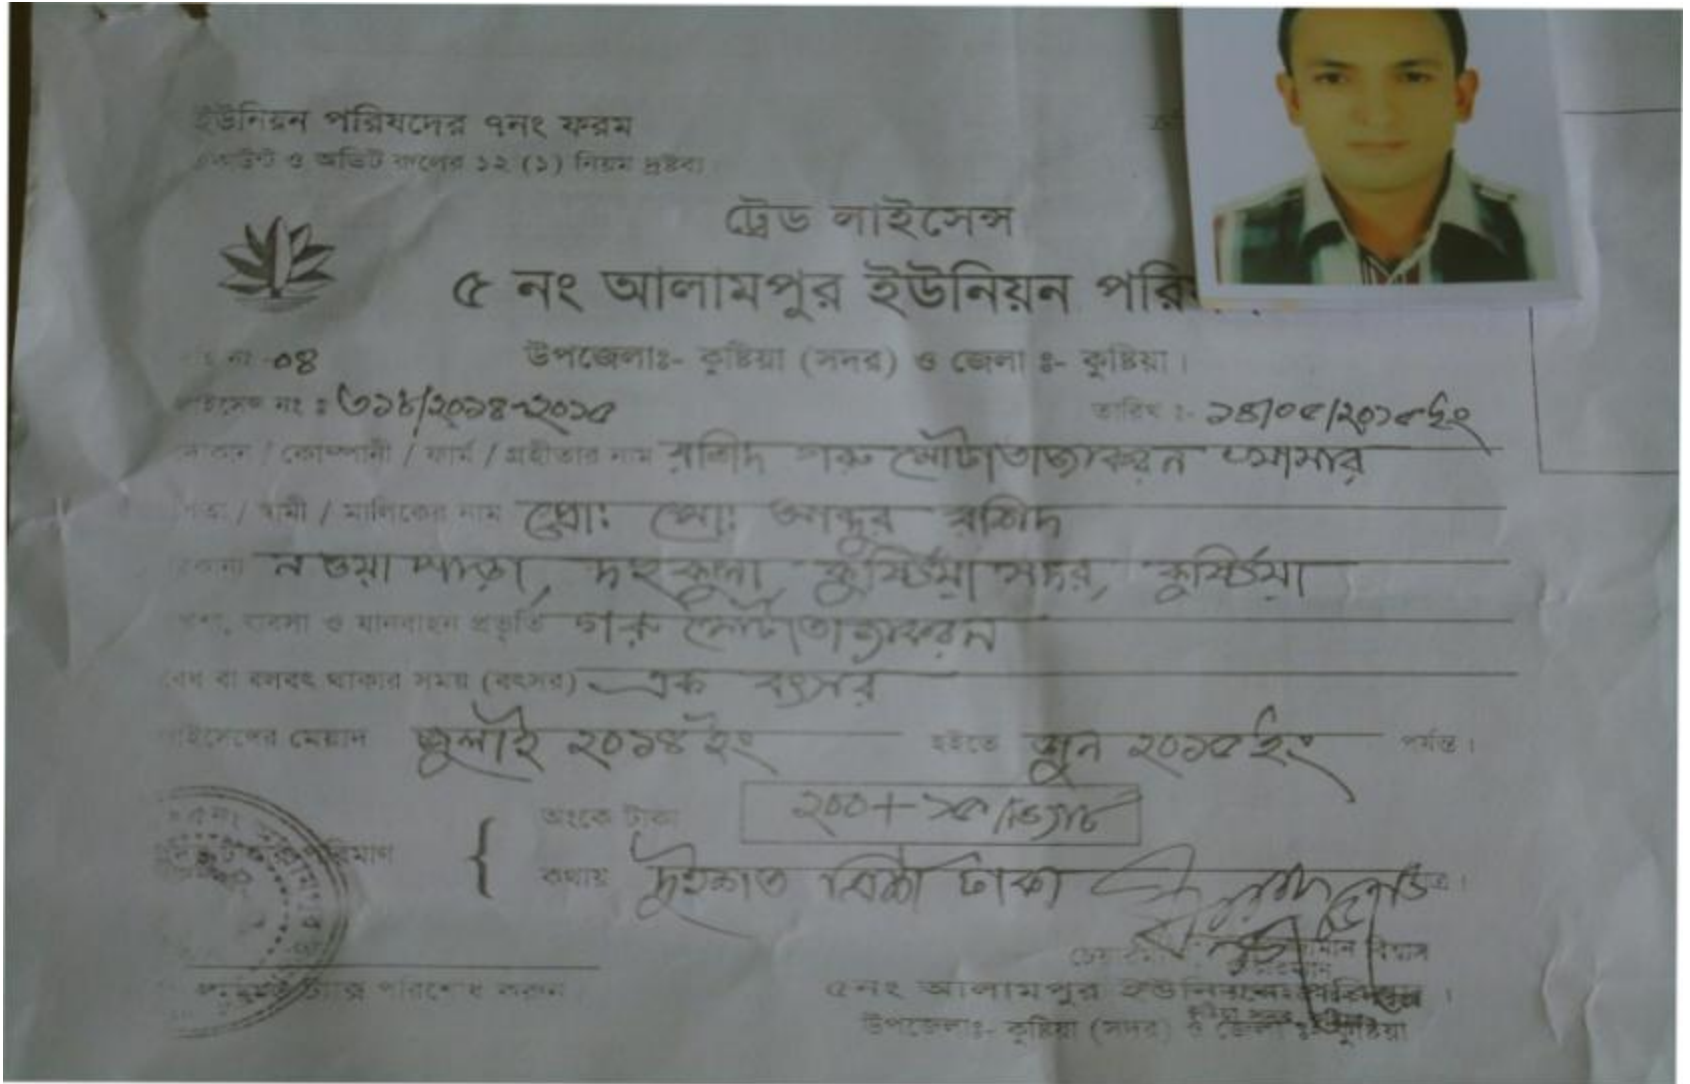 ইউনিয়ন পরিষদের ৭নং ফরম
ও অডিট রুলের ১২ (১) নিয়ম দ্রষ্টব্য
ট্রেড লাইসেন্স
৫ নং আলামপুর ইউনিয়ন পরি
নং -০৪
উপজেলাঃ- কুষ্টিয়া (সদর) ও জেলা ঃ- কুষ্টিয়া।
লাইসেন্স নং ঃ ৩১৮/২০১৪-২০১৫
তারিখ ঃ- /০৫/২০১৫ইং
দোকান / কোম্পানী / ফার্ম / গ্রহীতার নাম রশিদ গরু মোটাতাজাকরন খামার
পিতা / স্বামী / মালিকের নাম প্রোঃ মোঃ আব্দুর রশিদ
ঠিকানা নওয়াপাড়া, দহকুলা, কুষ্টিয়া সদর, কুষ্টিয়া
পেশা, ব্যবসা ও যানবাহন প্রভৃতি গরু মোটাতাজাকরন
বৈধ বা বলবৎ থাকার সময় (বৎসর) এক বৎসর
লাইসেন্সের মেয়াদ জুলাই ২০১৪ ইং হইতে জুন ২০১৫ ইং পর্যন্ত।
অংকে টাকা ২০০+
পরিমাণ {
কথায় দুইশত টাকা মাত্র।
বিশ্বাস
ট্যাক্স পরিশোধ করুন
৫নং আলামপুর ইউনিয়ন পরিষদ।
উপজেলাঃ- কুষ্টিয়া (সদর) ও জেলা ঃ কুষ্টিয়া